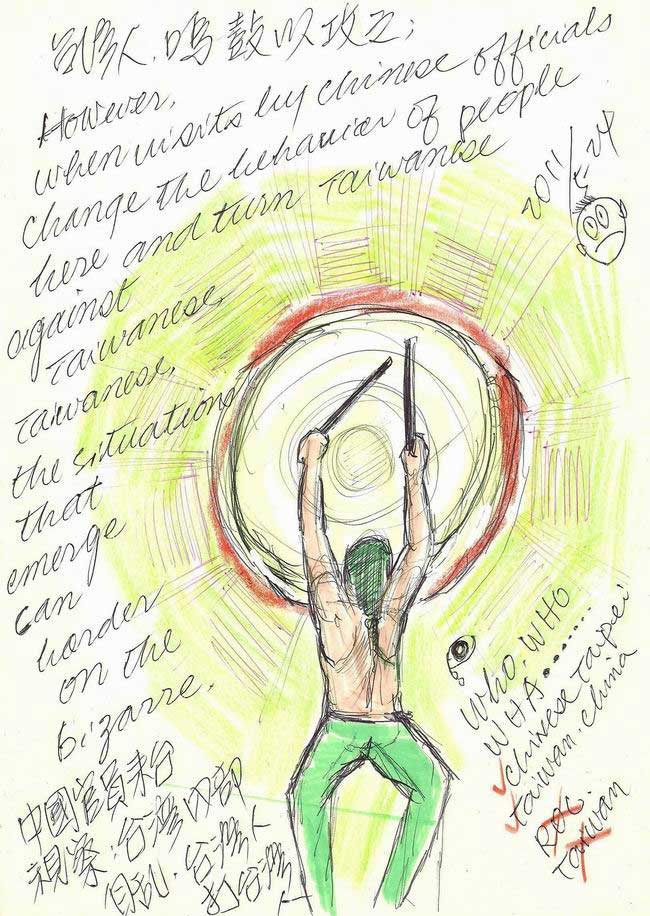 鳴鼓以攻之;
However,
when visits by chinese officials
change the behavior of people
here and turn Taiwanese
against
Taiwanese,
Taiwanese,
the situations
that
emerge
can
border
on the
bizarre.
2011/5-24
WHO. WHO
WHA.......
chinese Taipei
taiwan.china
R.O.C.
Taiwan
中國官員来台
視察.台灣內部
自乱.台灣人
打台灣人